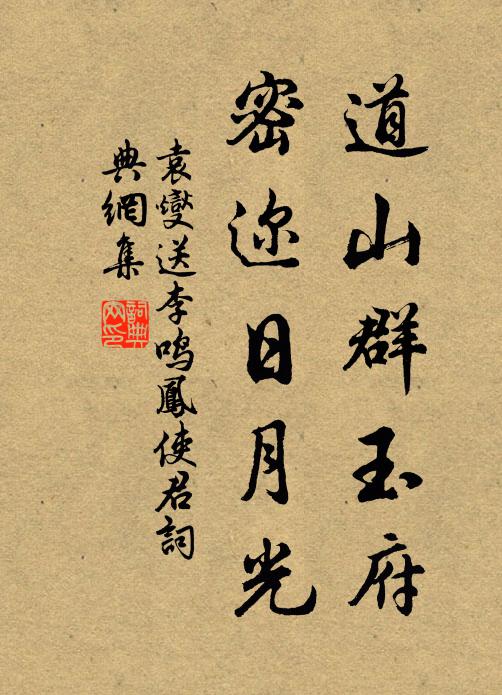 道山群玉府
密迩日月光
袁燮送李鸣鳳使君詞
典網集
詞典网印